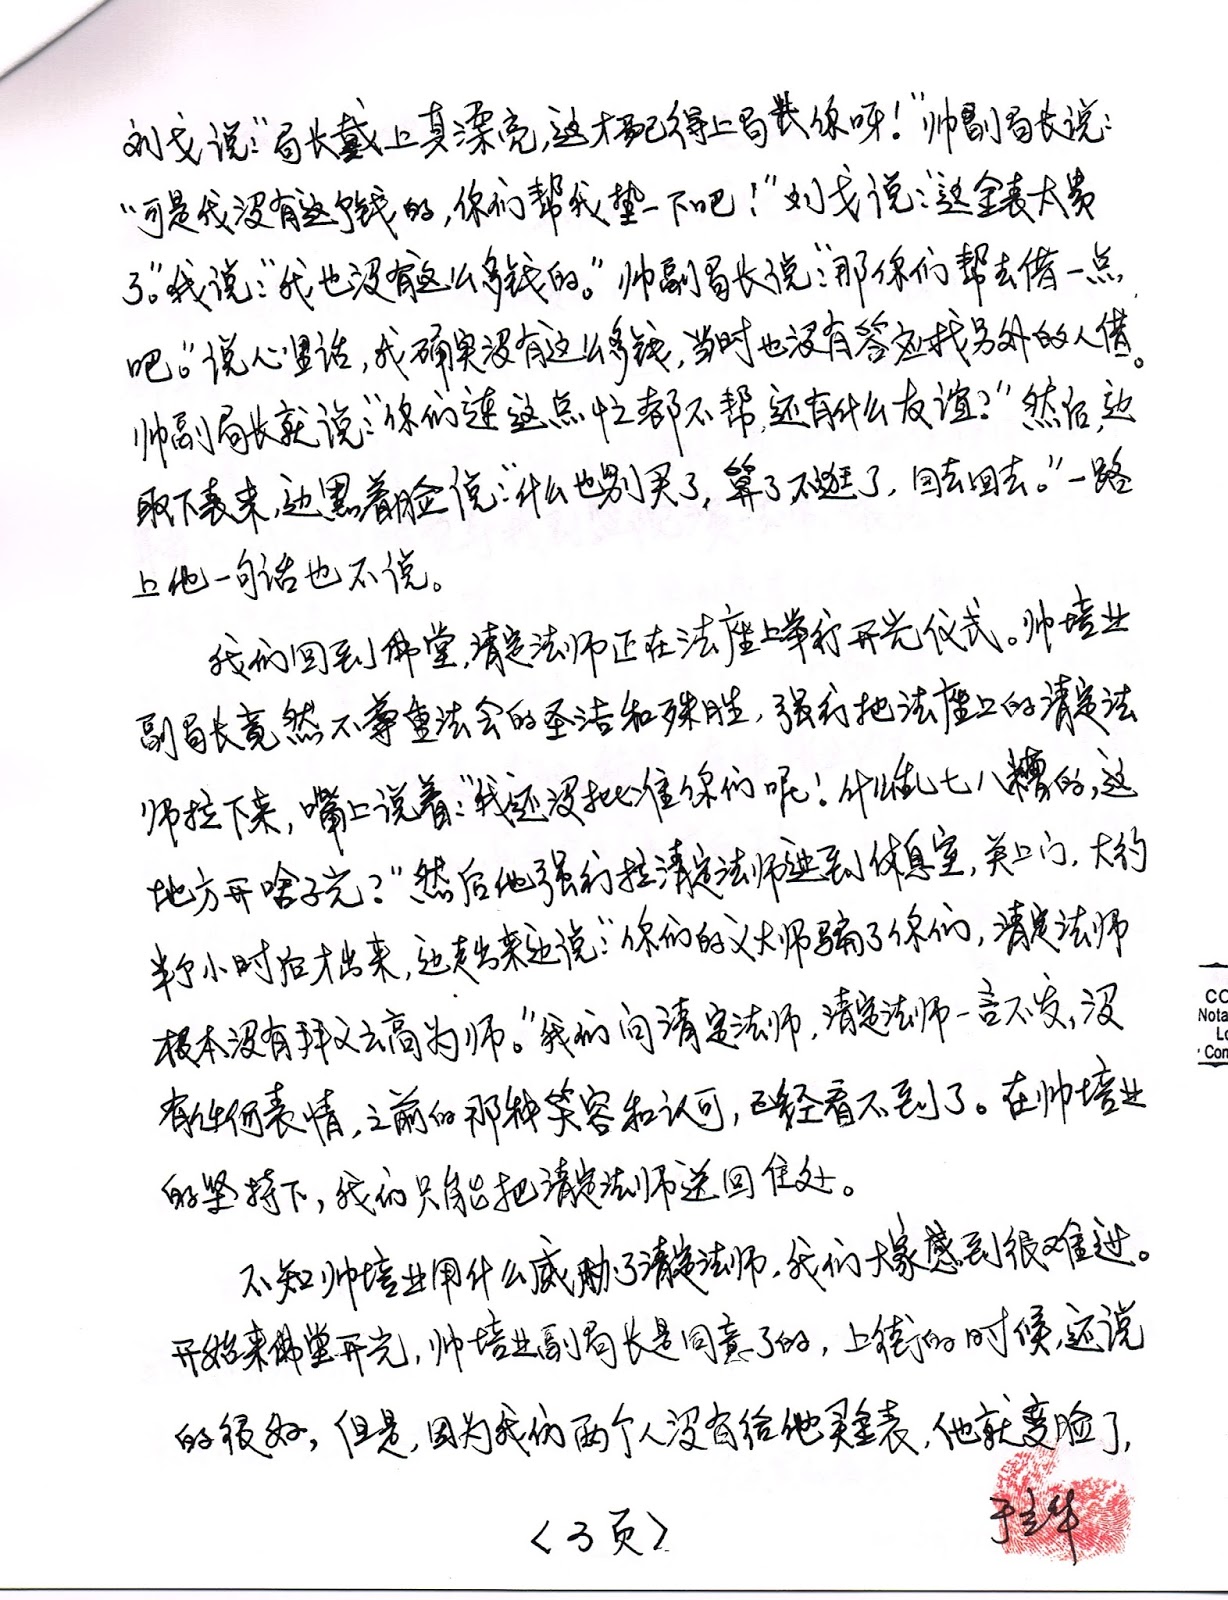 刘戈说：“局长戴上真漂亮，这才配得上局长你呀！”帅副局长说：
“可是我没有这个钱的，你们帮我垫一下吧！”刘戈说：“这金表太贵
了。”我说：“我也没有这么多钱的。”帅副局长说：“那你们帮去借一点
吧。”说心里话，我确实没有这么多钱，当时也没有答应找另外的人借。
帅副局长就说：“你们连这点忙都不帮，还有什么友谊？”然后，边
取下表来，边黑着脸说：“什么也别买了，算了不逛了，回去回去。”一路
上他一句话也不说。
我们回到佛堂，清定法师正在法座上举行开光仪式。帅培业
副局长竟然不尊重法会的圣洁和殊胜，强行把法座上的清定法
师拉下来，嘴上说着：“我还没批准你们呢！什么乱七八糟的，这
地方开啥子光？”然后他强行拉清定法师进到休息室，关上门，大约
半个小时后才出来，边走出来边说：“你们的义大师骗了你们，清定法师
根本没有拜义云高为师。”我们问清定法师，清定法师一言不发，没
有任何表情，之前的那种笑容和认可，已经看不到了。在帅培业
的坚持下，我们只能把清定法师送回住处。
不知帅培业用什么威胁了清定法师，我们大家感到很难过。
开始来佛堂开光，帅培业副局长是同意了的，上街的时候，还说
的很好，但是，因为我们两个人没有给他买金表，他就变脸了，
<3页>
于立华
CO
Nota
Lo
Com